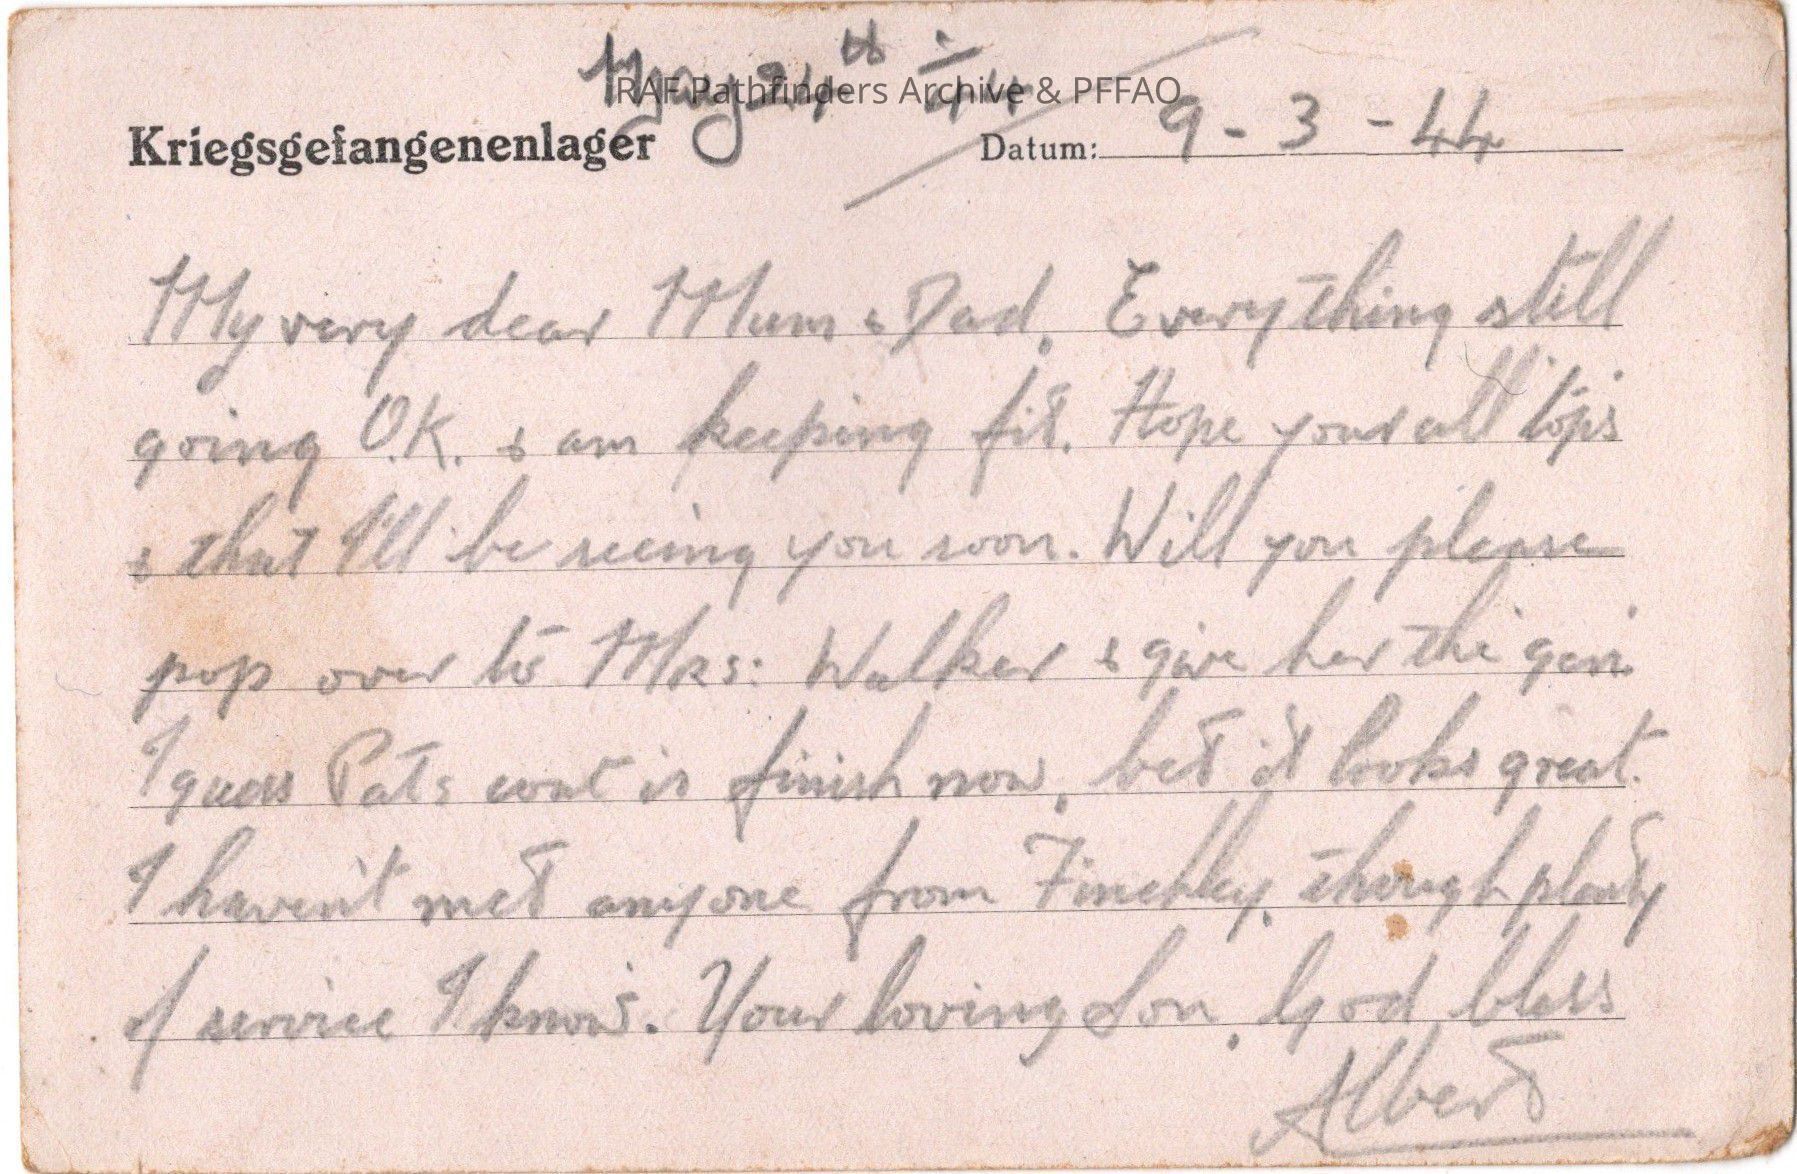 May 24th 44
RAF Pathfinders Archive & PFFAO
Kriegsgefangenenlager Datum: 9-3-44
My very dear Mum & Dad, Everything still
going O.K. & am keeping fit. Hope your all tops
& that I'll be seeing you soon. Will you please
pop over to Mrs: Walker & give her the gen.
I guess Pats coat is finish now, bet it looks great.
I haven't met anyone from Finchley, though plenty
of service I know. Your loving Son, God bless
Albert